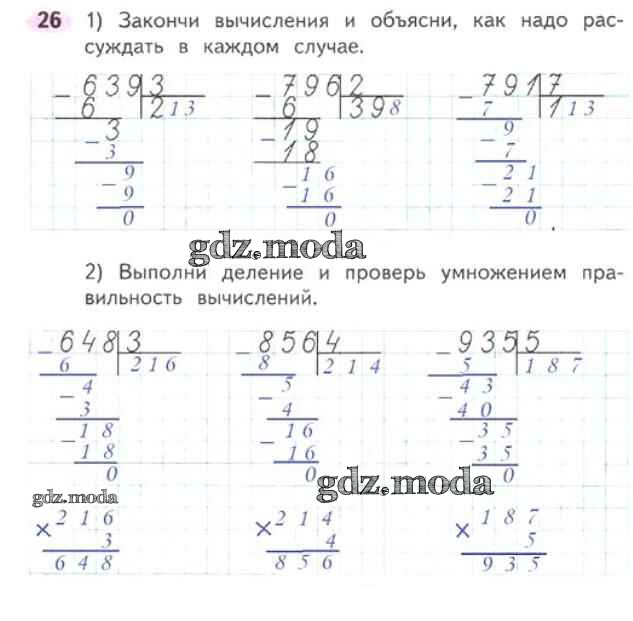 26 1) Закончи вычисления и объясни, как надо рас-
суждать в каждом случае.
– 639 3 – 796 2 – 791 7
6 213 6 398 7 113
– 3 – 19 – 9
3 18 7
– 9 – 16 – 21
9 16 21
0 0 0
gdz.moda
2) Выполни деление и проверь умножением пра-
вильность вычислений.
– 648 3 – 856 4 – 935 5
6 216 8 214 5 187
– 4 – 5 – 43
3 4 40
– 18 – 16 – 35
18 16 35
0 0 0
gdz.moda gdz.moda
× 216 × 214 × 187
3 4 5
648 856 935